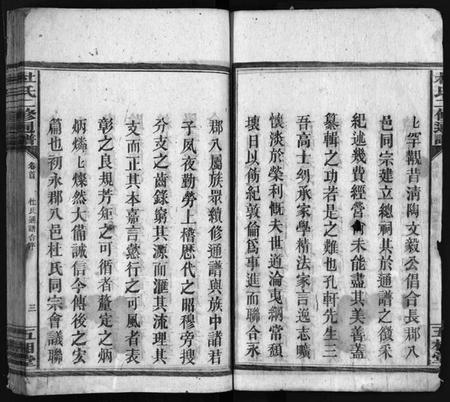 上罕觀昔清陶文毅公倡合長郡八
邑同宗建立總祠其於通譜之徵采
紀述幾費經營尚未能盡其美善蓋
纂輯之功若是之難也孔軒先生三
吾高士幼承家學精法家言逸志曠
懷淡於榮利慨夫世道淪夷綱常頹
壞日以飭紀敦倫爲事進而聯合永
郡八屬族衆續修通譜與族中諸君
子夙夜勤勞上稽歷代之昭穆旁搜
分支之齒錄窮其源而滙其流理其
支而正其本嘉言懿行之可風者表
彰之良規芳矩之可循者釐定之炳
炳爥上燦然大備誠信今傳後之宏
篇也初永郡八邑杜氏同宗會議聯
杜氏二修通譜
卷首
杜氏通譜合序
三
五桐堂